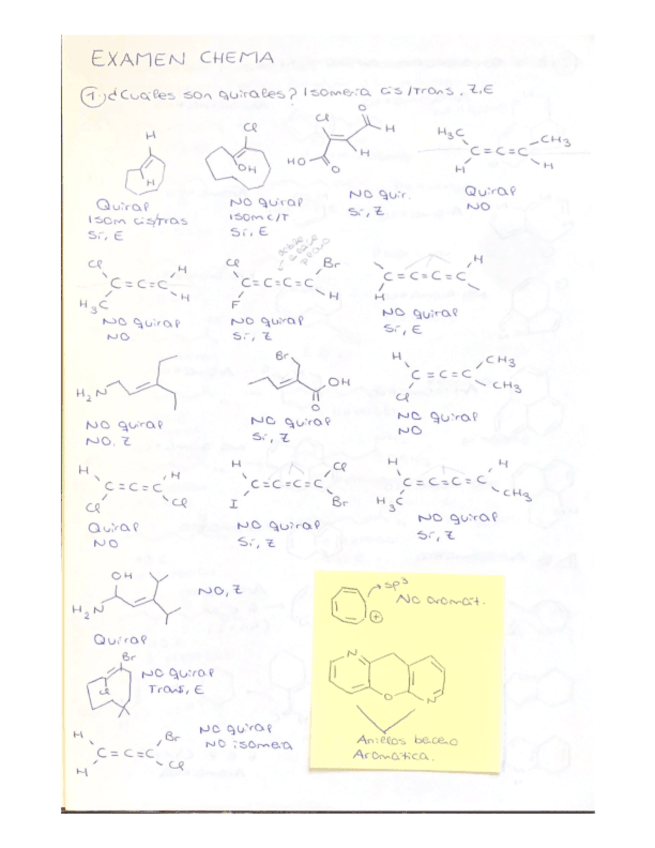 EXAMEN CHEMA
1) ¿Cuáles son quirales? Isomería cis/trans, Z,E
H
H
Quiral
Isom cis/tras
Sí, E
Cl
OH
NO quiral
isom c/t
Sí, E
Cl
O
H
HO
O
H
NO quir.
Sí, Z
H₃C
CH₃
C=C=C
H
H
Quiral
NO
Cl
H
C=C=C
H₃C
H
NO quiral
NO
Cl
Br
C=C=C=C
F
H
NO quiral
Sí, Z
H
C=C=C=C
H
NO quiral
Sí, E
H₂N
NO quiral
NO, Z
Br
OH
O
NO quiral
Sí, Z
H
CH₃
C=C=C
CH₃
Cl
NO quiral
NO
H
H
C=C=C
Cl
Cl
Quiral
NO
H
Cl
C=C=C=C
I
Br
NO quiral
Sí, Z
H
H
C=C=C=C
H₃C
CH₃
NO quiral
Sí, Z
OH
H₂N
NO, Z
Quiral
Br
Cl
NO quiral
Trans, E
H
Br
C=C=C
H
Cl
NO quiral
NO isomería
sp³
No aromát.
+
N
O
N
Anillos benceno
Aromática.